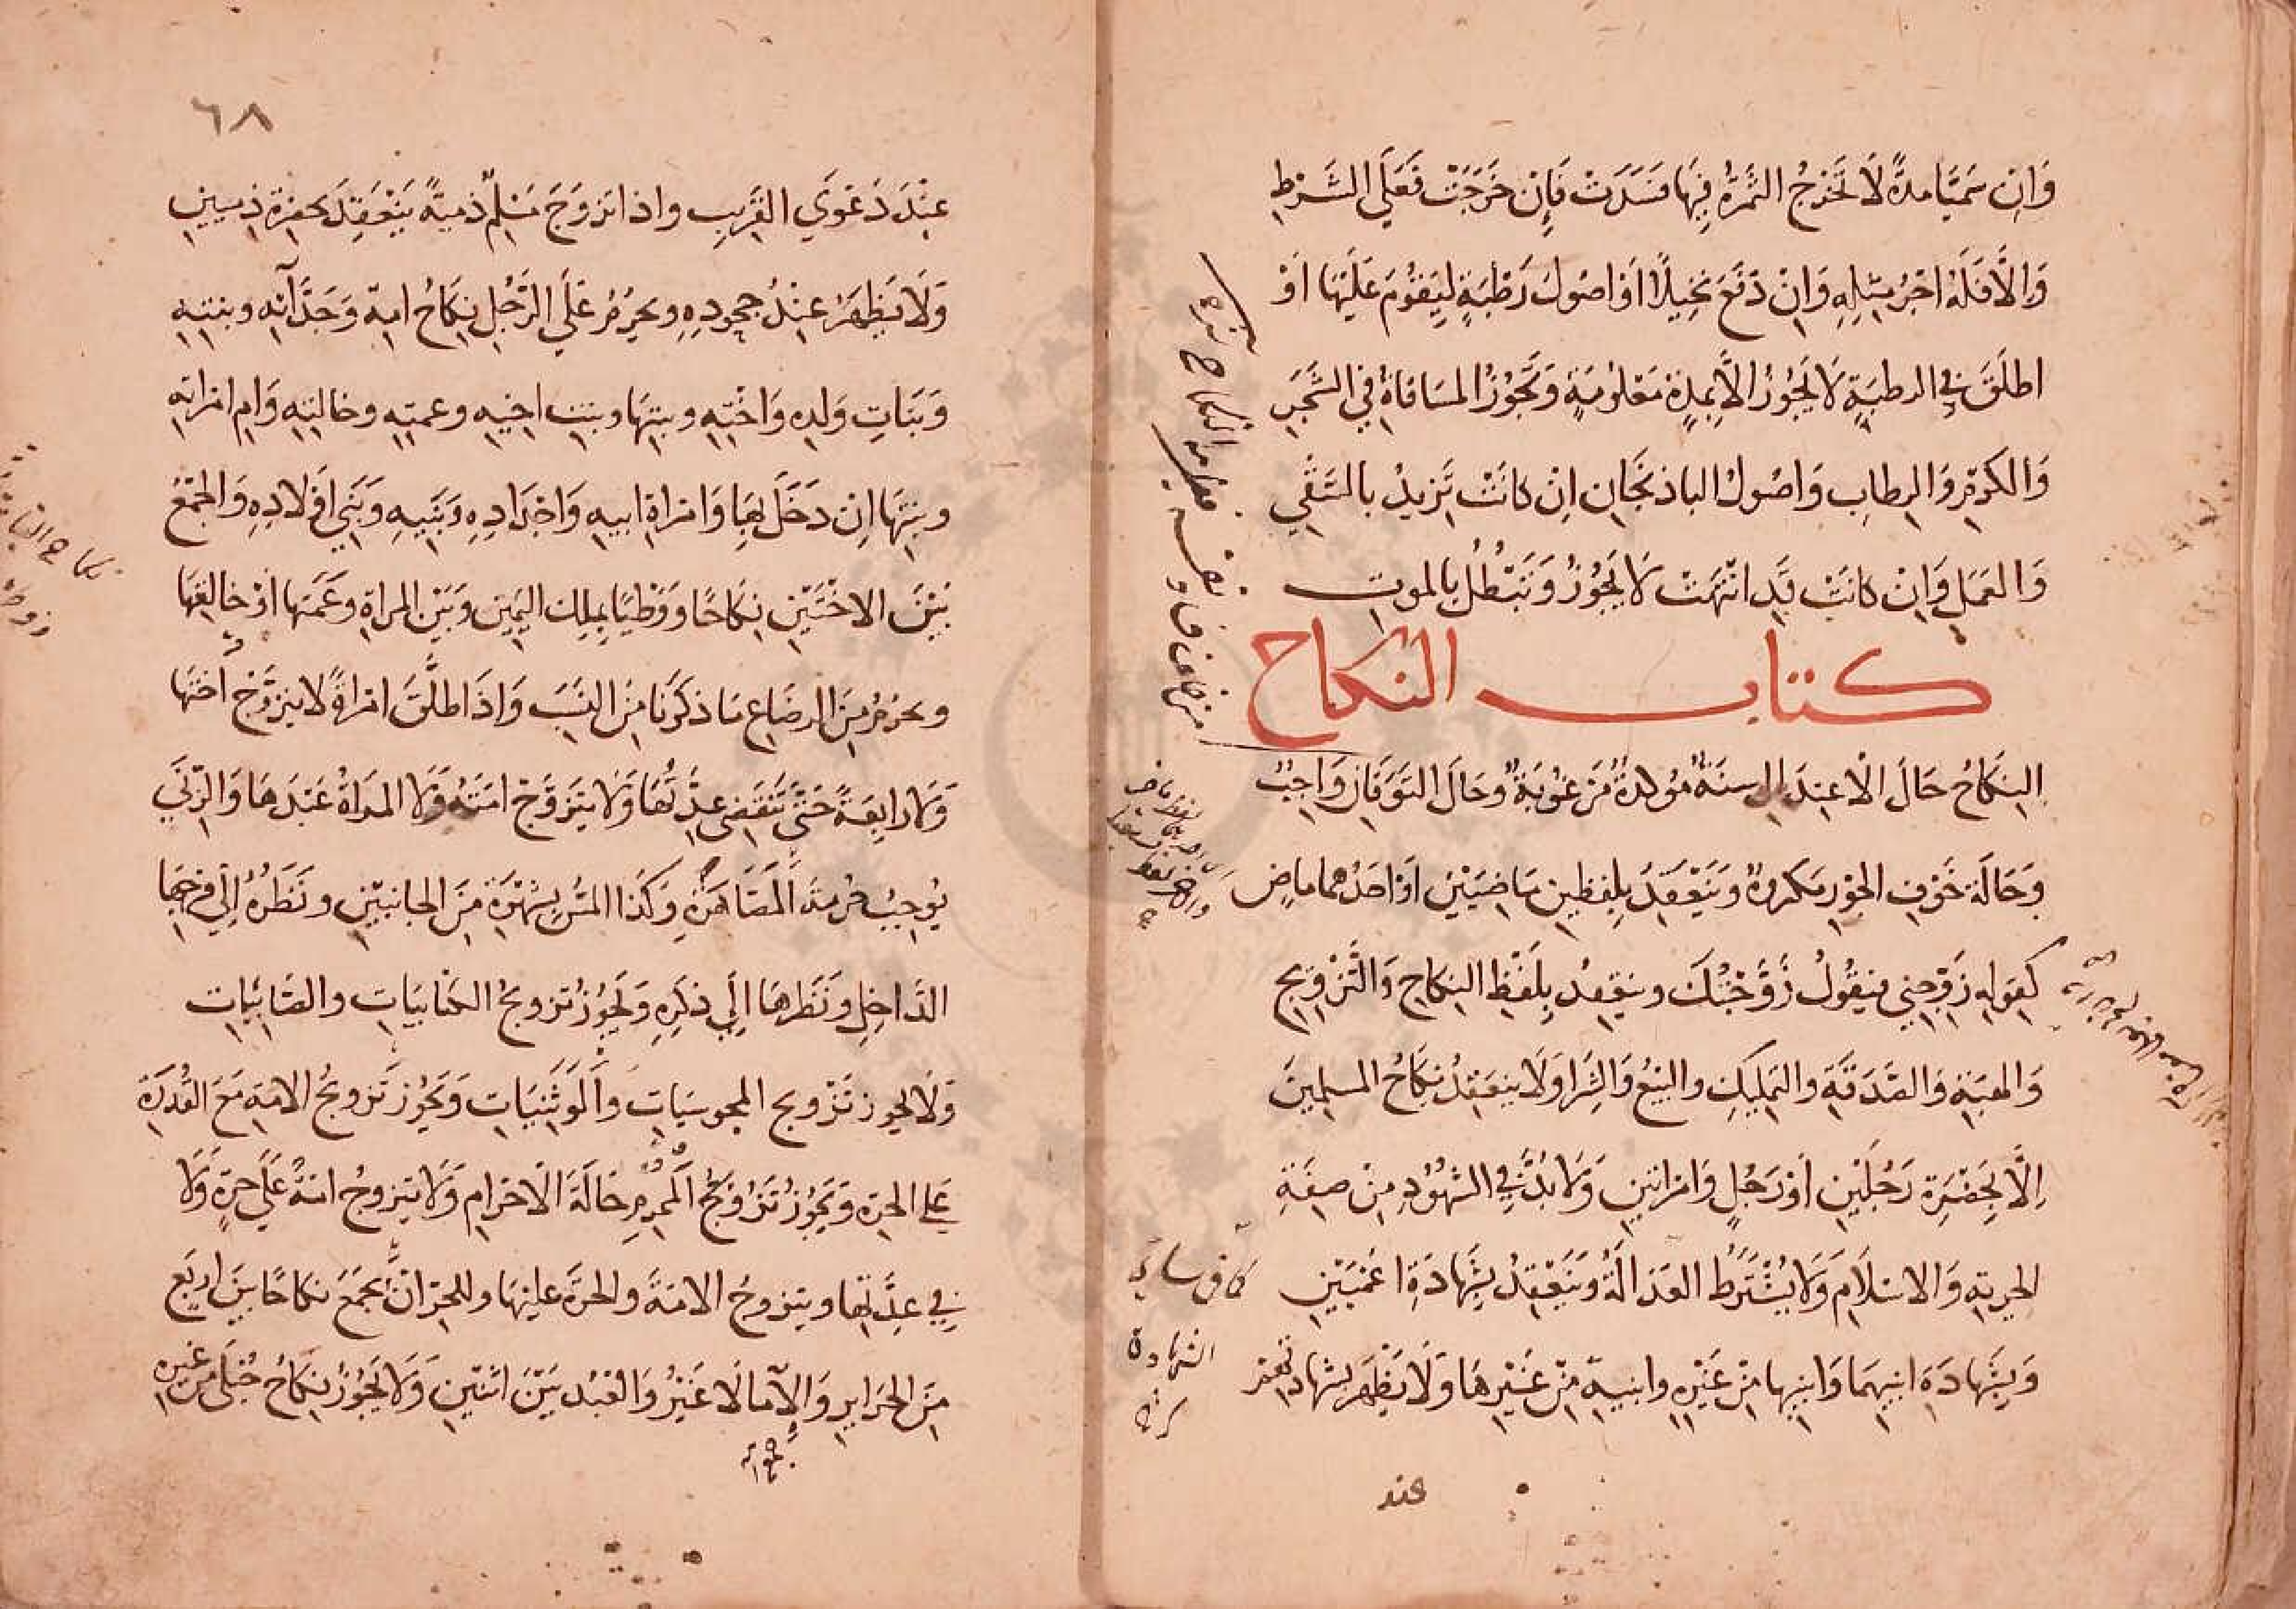 وَاِنْ سَمَّيَا مدةً لَا تَخرُجُ الثَّمَرَةُ فِيهَا فَسَدَتْ فَإِنْ خَرَجَتْ فَعَلَى الشَّرْطِ
وَاِلَّا فَلَهُ اَجْرُ مِثْلِهِ وَاِنْ دَفَعَ نَخِيلًا اَوْ اصُولَ رَطْبَةٍ لِيَقُومَ عَلَيْهَا اَوْ
اطلَقَ فِي الرطبَةِ لَا يَجُوزُ اِلَّا بِمدةٍ مَعْلُومَةٍ وَتَجُوزُ المسَاقاةُ فِي الشَّجَرِ
وَالكَرْمِ وَالرِطابِ وَاصُولِ الباذنجَانِ اِنْ كانَتْ تَزِيدُ بالسَّقْيِ
وَالعَمَلِ وَاِنْ كانَتْ قَدِ انْتَهَتْ لَا يَجُوزُ وَتَبْطُلُ بِالموتِ
كتاب النكاح
النِكَاحُ حَالَ الْاعتِدَالِ سنَةٌ مُوكدةٌ مَرْغُوبَةٌ وَحَالَ التَوَقَانِ وَاجِبٌ
وَحَالَةَ خَوْفِ الجَوْرِ مَكرُوهٌ وَيَنْعَقِدُ بِلفظينِ مَاضِيَيْنِ اَوْ احَدُهما ماضٍ
كَقولِهِ زَوِّجِنِي فيَقُولُ زَوَّجْتُكَ وينعقِدُ بِلَفْظِ النِكاحِ وَالتَّزْوِيجِ
وَالهبَةِ وَالصَّدَقَةِ والتملِيكِ والبَيْعُ وَالشِرَا وَلَا ينعَقِدُ نكَاحُ المسلِمينَ
اِلَّا بِحَضْرَةِ رَجُلَيْنِ اَوْ رَجُلٍ وَامْرَاتَينِ وَلَا بُدَّ فِي الشهُودِ مِنْ صِفَةِ
الحرِيةِ وَالاسْلَامِ وَلَا يُشْتَرَطُ العَدَالَةُ وَيَنْعَقِدُ بِشَهادَةِ اعْمَيَيْنِ
وَبِشَهادَةِ ابنَيهِمَا وَابنِيها مِنْ غَيْرِهِ وابنيهِ مِنْ غَيْرِهَا وَلَا يَظْهَرُ بِشهادتهِمْ
عند
٦٨
عِنْدَ دَعْوَي القَرِيبِ واذا تزوَجَ مُسْلِمٌ ذميةً يَنْعَقِدُ بحضرةِ ذميينِ
وَلَا يَظهَرُ عِنْدَ جحودِهِ ويحرُمُ عَلَى الرَّجُلِ نِكَاحُ امِهِ وَجَدَّاتِهِ وبنتِهِ
وَبَنَاتِ وَلدِهِ وَاخْتِهِ وبنتِهَا وبنتِ اخيهِ وعمتِهِ وخالتِهِ وَامِ امْرَاتِهِ
وبنتِهَا اِنْ دَخَلَ بِهَا وَامْرَاةِ ابيهِ وَاجْدَادِهِ وَبَنِيهِ وَبَنِي اَوْلَادِهِ وَالجَمْعُ
بَيْنَ الاخْتَيْنِ نِكَاحًا وَوَطْيًا بِمِلِكِ اليَمِينِ وَبَيْنَ المراةِ وَعَمَتِها اَوْ خالتِهَا
ويحرُمُ مِنَ الرضَاعِ مَا ذكَرْنَا مِنَ النَسَبَ وَاذَا طلَّقَ امْرَاةً لا يتزَوَّجْ اخْتَهَا
وَلَا رابِعَةً حَتَّى تَنْقَضِى عِدَّتُهَا وَلَا يَتَزَوَّجْ امَتَهُ وَلَا المَرَاةُ عَبْدَهَا وَالزِنَي
يُوجِبُ حُرمَةَ الْمُصَاهَرَةِ وَكَذَا المسُّ بِشَهْوَةٍ مِنَ الجانبَيْنِ ونَظَرُهُ اِلَى فرجِهَا
الدَّاخِلِ وَنَظَرِهَا اِلَي ذَكَرِهِ وَيَجُوزُ تزويجُ الكتَابيَاتِ والصَابِئَاتِ
وَلَا يجوز تَزويج المجوسيَاتِ وَالْوَثَنِيَاتِ وَيَجُوزُ تَزويجُ الامَةِ مَعَ القُدرَةِ
عَلي الحرةِ وَيَجُوزُ تَزْوِيجُ الْمُحرِمِ حَالَةَ الْاحْرَامِ وَلَا يتزوجُ امَةً عَلَى حرةٍ وَلَا
فِي عِدَّتِهَا ويتزوجُ الامَةَ والحُرةَ عليهَا وللحُرِّ اَنْ يَجمَعَ نكاحًا بينَ اربَعِ
مِنَ الحَرَايرِ وَالْاِمَا لَا غَيْرُ وَالعَبْد بَيْنَ اثْنَتَينِ وَلَا يَجُوزُ نِكَاحُ حُبْلَى مِنْ غيرِهِ